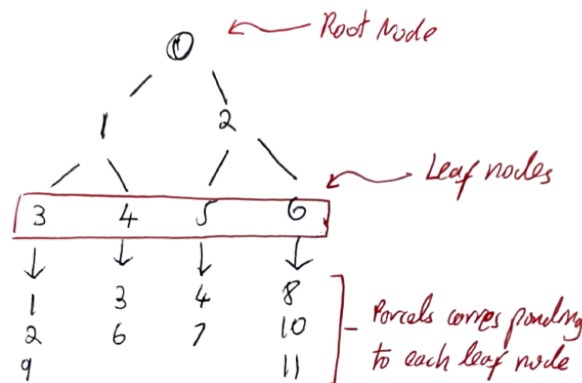 0 Root Node
1 2
Leaf nodes
3 4 5 6
1 3 4 8
2 6 7 10
9 11
Parcels corresponding
to each leaf node